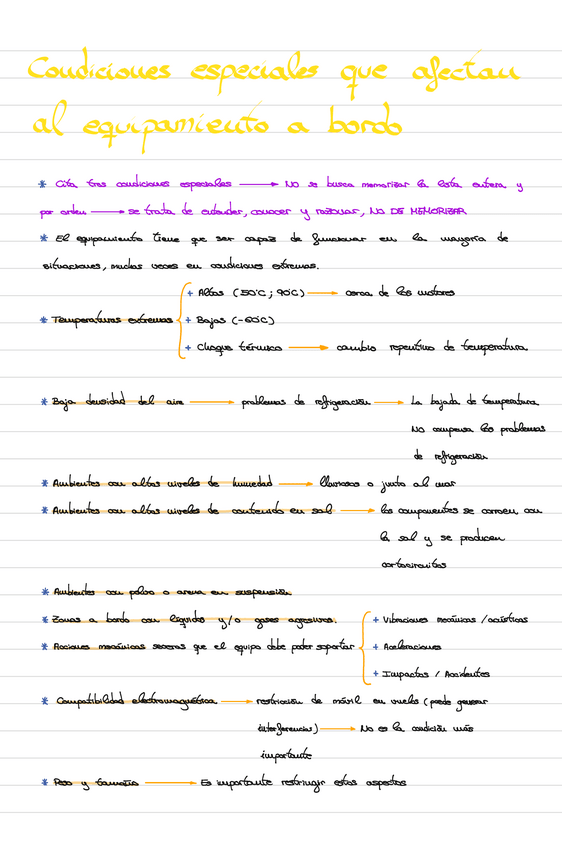 Condiciones especiales que afectan
al equipamiento a bordo
* Cita tres condiciones especiales → NO se busca memorizar la lista entera y
por orden → se trata de entender, conocer y razonar, NO DE MEMORIZAR
* El equipamiento tiene que ser capaz de funcionar en la mayoría de
situaciones, muchas veces en condiciones extremas.
+ Altas (50°C; 90°C) → cerca de los motores
* Temperaturas extremas + Bajas (-60°C)
+ Choque térmico → cambio repentino de temperatura
* Baja densidad del aire → problemas de refrigeración → La bajada de temperatura
NO compensa los problemas
de refrigeración
* Ambientes con altos niveles de humedad → lluviosos o junto al mar
* Ambientes con altos niveles de contenido en sal → los componentes se corroen con
la sal y se producen
cortocircuitos
* Ambientes con polvo o arena en suspensión
* Zonas a bordo con líquidos y/o gases agresivos. + Vibraciones mecánicas /acústicas
* Acciones mecánicas severas que el equipo debe poder soportar + Aceleraciones
+ Impactos / Accidentes
* Compatibilidad electromagnética → restricción de móvil en vuelos (puede generar
interferencias) → No es la condición más
importante
* Peso y tamaño → Es importante restringir estos aspectos